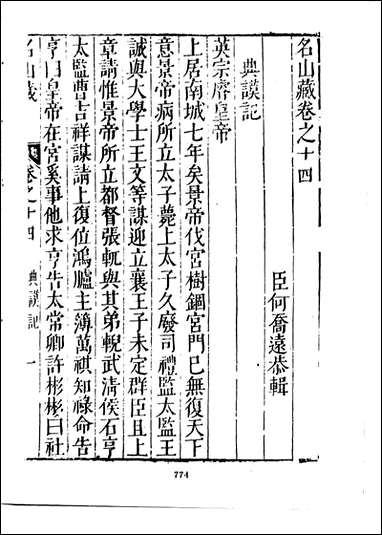 名山藏卷之十四
臣何喬遠恭輯
典謨記
英宗睿皇帝
上居南城七年矣景帝伐宮樹錮宮門已無復天下
意景帝病所立太子薨上太子久廢司禮監太監王
誠與大學士王文等謀迎立襄王子未定群臣且上
章請惟景帝所立都督張軏與其弟輗武清侯石亨
太監曹吉祥謀請上復位鴻臚主簿萬祺知祿命告
亨曰皇帝在宮奚事他求亨告太常卿許彬彬曰社
名山藏 卷之十四 典謨記 一
774